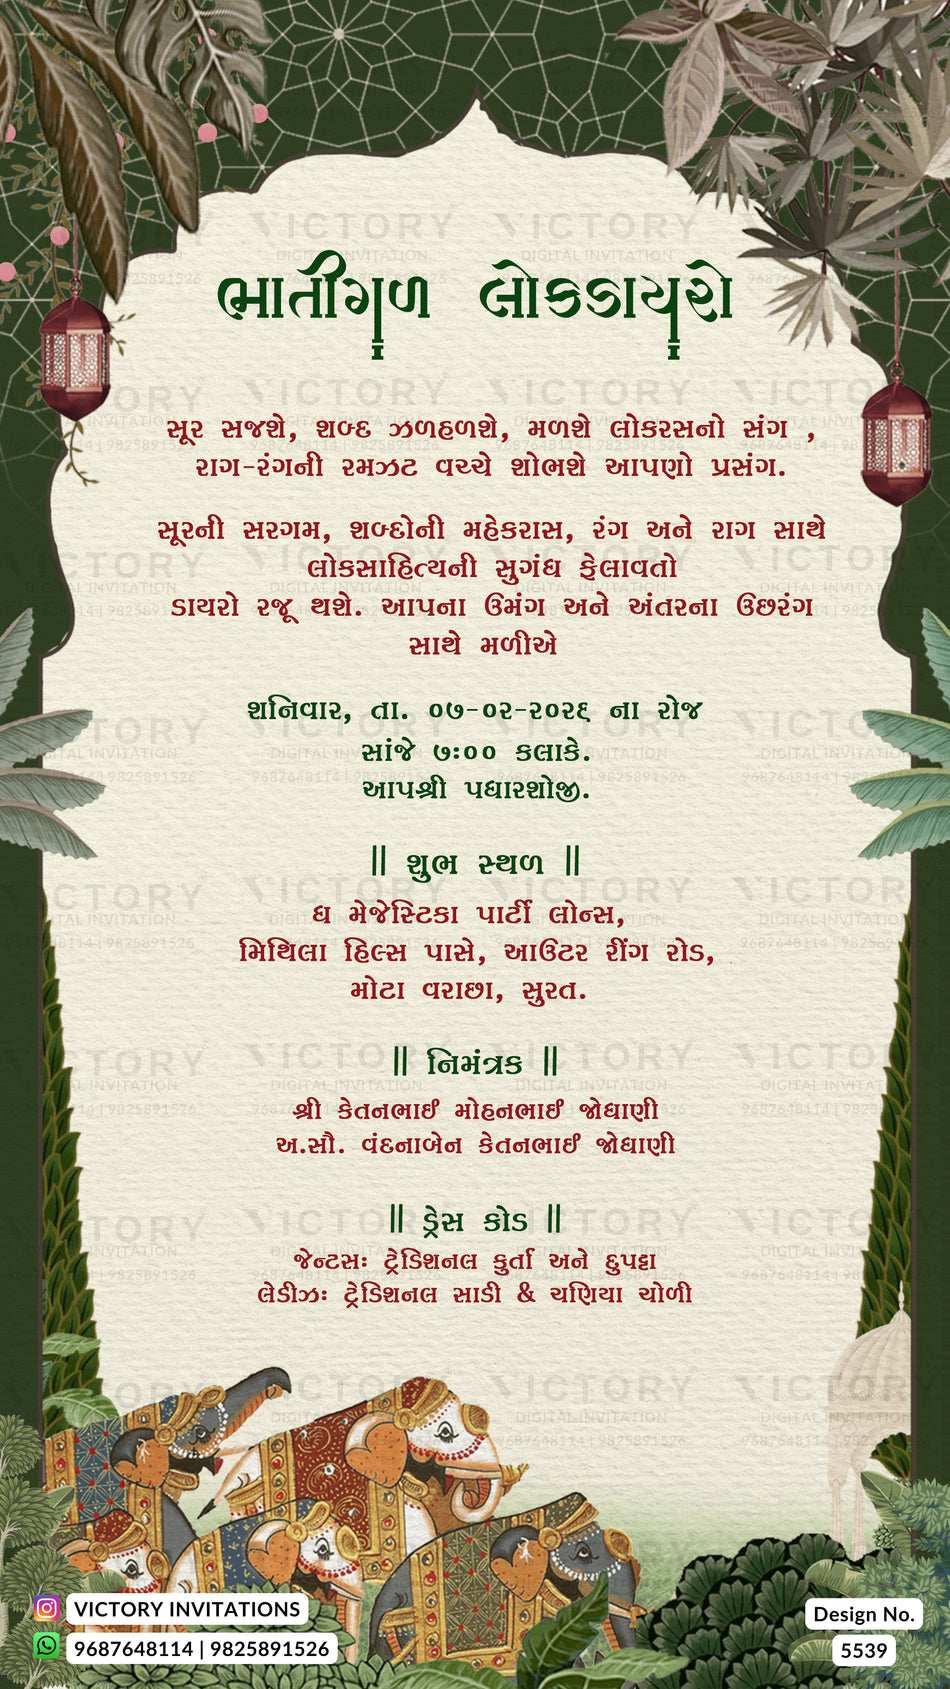 ભાતીગળ લોકડાયરો
સૂર સજશે, શબ્દ ઝળહળશે, મળશે લોકરસનો સંગ ,
રાગ-રંગની રમઝટ વચ્ચે શોભશે આપણો પ્રસંગ.
સૂરની સરગમ, શબ્દોની મહેકરાસ, રંગ અને રાગ સાથે
લોકસાહિત્યની સુગંધ ફેલાવતો
ડાયરો રજૂ થશે. આપના ઉમંગ અને અંતરના ઉછરંગ
સાથે મળીએ
શનિવાર, તા. ૦૭-૦૨-૨૦૨૬ ના રોજ
સાંજે ૭:૦૦ કલાકે.
આપશ્રી પધારશોજી.
|| શુભ સ્થળ ||
ધ મેજેસ્ટિકા પાર્ટી લોન્સ,
મિથિલા હિલ્સ પાસે, આઉટર રીંગ રોડ,
મોટા વરાછા, સુરત.
|| નિમંત્રક ||
શ્રી કેતનભાઈ મોહનભાઈ જોધાણી
અ.સૌ. વંદનાબેન કેતનભાઈ જોધાણી
|| ડ્રેસ કોડ ||
જેન્ટસઃ ટ્રેડિશનલ કુર્તા અને દુપટ્ટા
લેડીઝઃ ટ્રેડિશનલ સાડી & ચણિયા ચોળી
VICTORY INVITATIONS
9687648114 | 9825891526
Design No.
5539